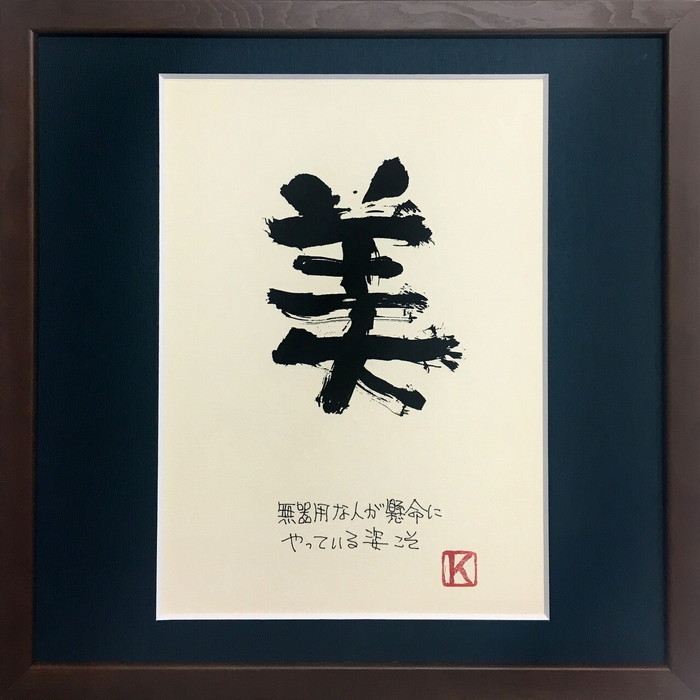 美
無器用な人が懸命に
やっている姿こそ
K